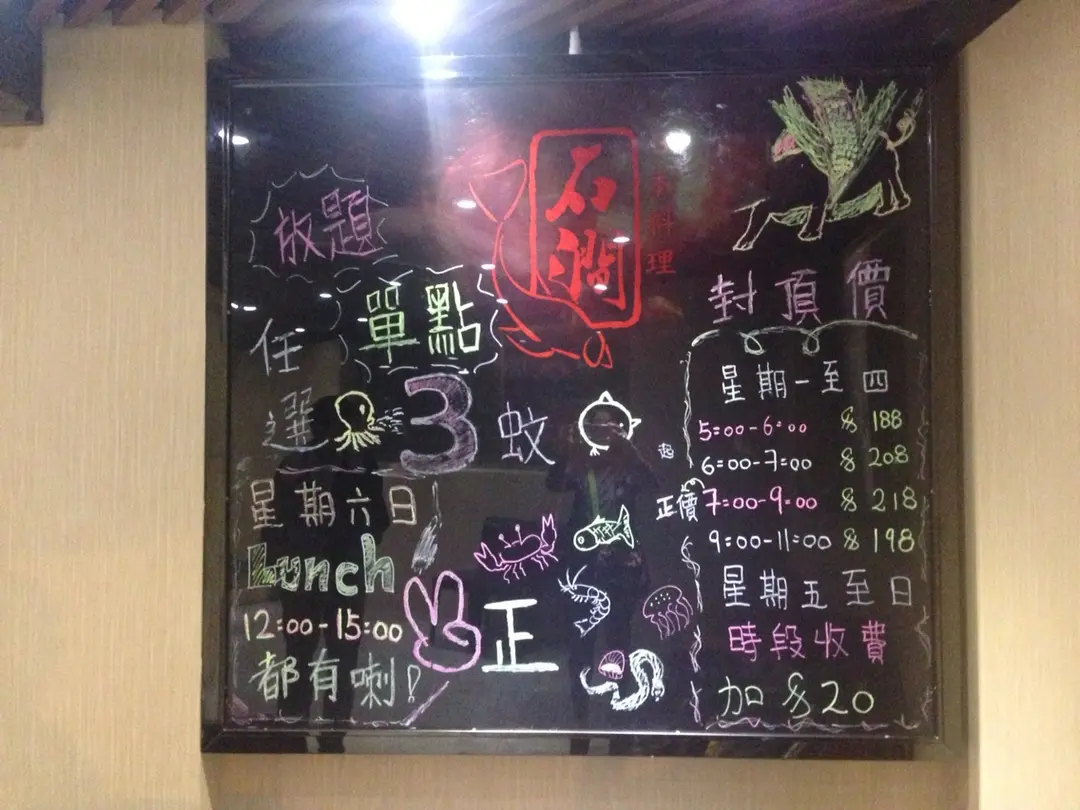 石澗
料理
放題
單點
任
選 3 蚊
起
星期六日
Lunch
12:00-15:00
都有喇!
正
封頂價
星期一至四
5:00-6:00 $188
6:00-7:00 $208
正價 7:00-9:00 $218
9:00-11:00 $198
星期五至日
時段收費
加 $20